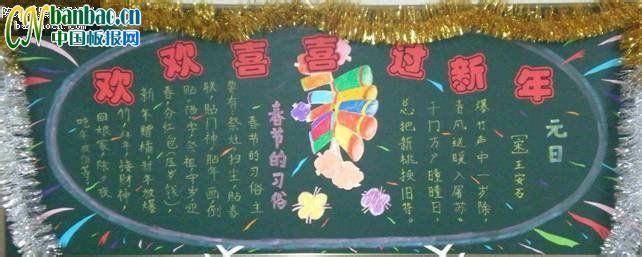 CNbanbac.cn
中国板报网
欢欢喜喜过新年
元日
[宋]王安石
爆竹声中一岁除,
春风送暖入屠苏。
千门万户曈曈日,
总把新桃换旧符。
春节的习俗
春节的习俗主
要有祭灶扫尘,贴春
联贴门神贴年画倒
贴福字,祭祖守岁迎
春,分红包(压岁钱),
新年赠橘放爆
竹接财神,
回娘家,除夕夜